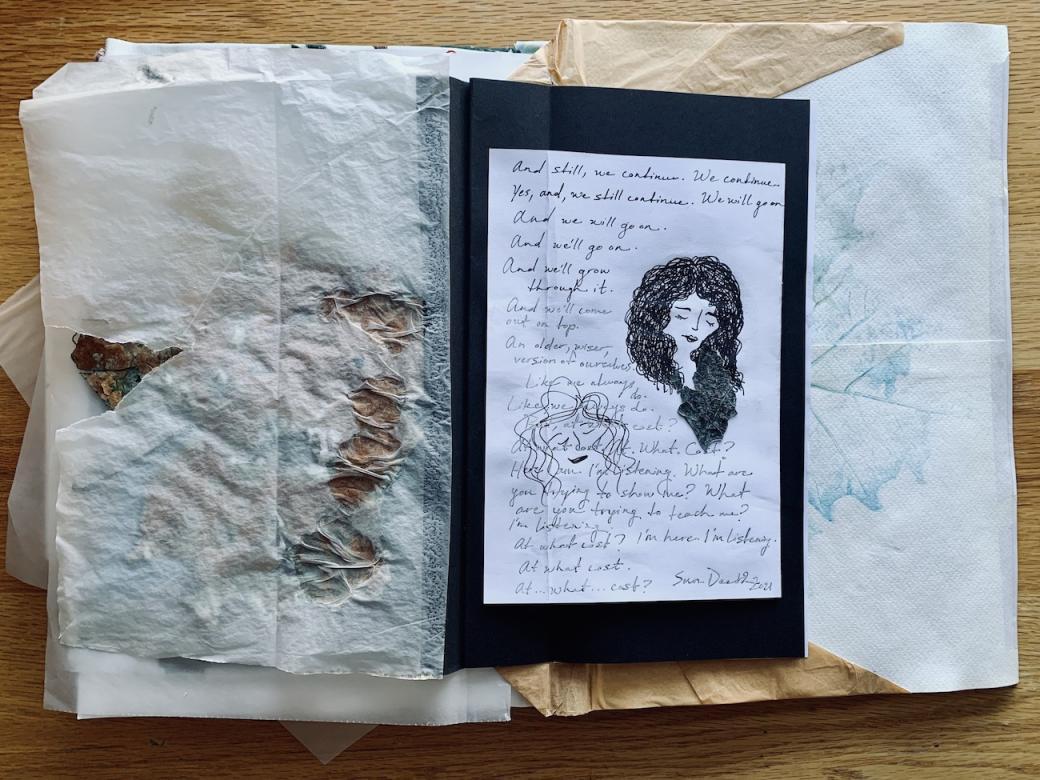 And still, we continue. We continue.
Yes, and, we still continue. We will go on
And we will go on.
And we'll go on.
And we'll grow
through it.
And we'll come
out on top.
An older, wiser,
version of ourselves.
Like me always
do.
Like we always do.
But, at what cost?
At what cost. At. What. Cost?
Here I am. I'm listening. What are
you trying to show me? What
are you trying to teach me?
I'm listening.
At what cost? I'm here. I'm listening.
At what cost.
At... what... cost?
2021